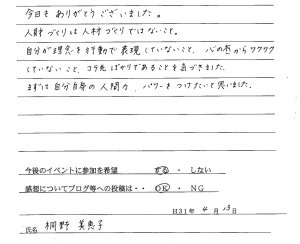 今日もありがとうございました。
人財づくりは人材づくりではないこと。
自分が理念を行動で表現していないこと、心の底からワクワク
していないこと、コテ先ばかりであることを気づきました。
まずは自分自身の人間力、パワーをつけたいと思いました。
今後のイベントに参加を希望 する ・ しない
感想についてブログ等への投稿は・・ OK ・ NG
H31年 4月 13日
氏名 桐野 美恵子